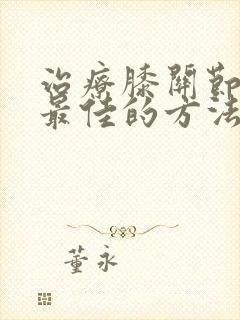 治療膝關節
最佳的方法
董永